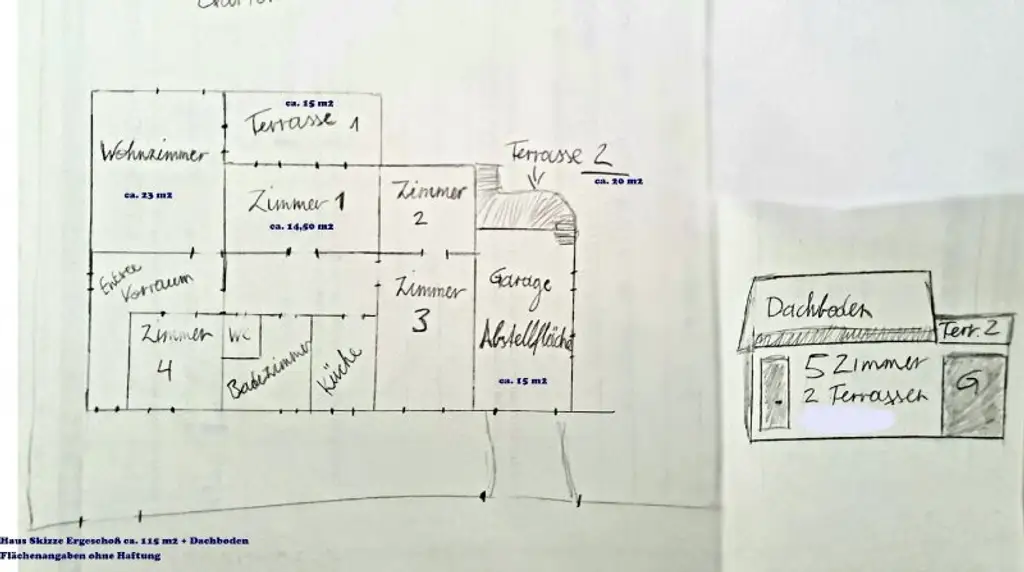 ca. 15 m2
Terrasse 1
Wohnzimmer
ca. 23 m2
Terrasse 2
ca. 20 m2
Zimmer 1
ca. 14,50 m2
Zimmer
2
Entree
Vorraum
Zimmer
3
Garage
Abstellfläche
ca. 15 m2
Zimmer
4
WC
Badezimmer
Küche
Dachboden
Terr. 2
5 Zimmer
2 Terrassen
G
Haus Skizze Ergeschoß ca. 115 m2 + Dachboden
Flächenangaben ohne Haftung